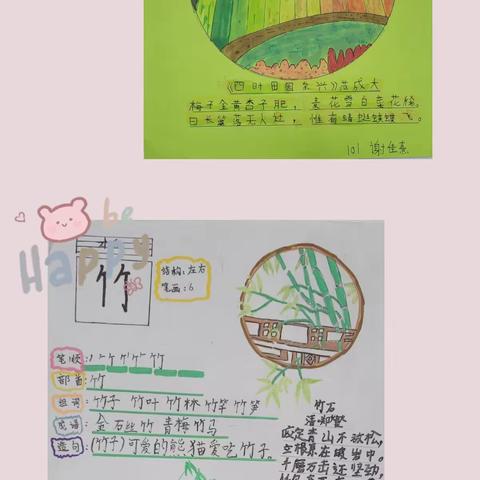 《四时田园杂兴》范成大
梅子金黄杏子肥，麦花雪白菜花稀。
日长篱落无人过，惟有蜻蜓蛱蝶飞。
101 谢佳熹
be
Happy
竹
结构：左右
笔画：6
笔顺：
部首：竹
组词：竹子 竹叶 竹林 竹竿 竹笋
成语：金石丝竹 青梅竹马
造句：(竹子)可爱的熊猫爱吃竹子。
竹石
清 郑燮
咬定青山不放松，
立根原在破岩中。
千磨万击还坚劲，